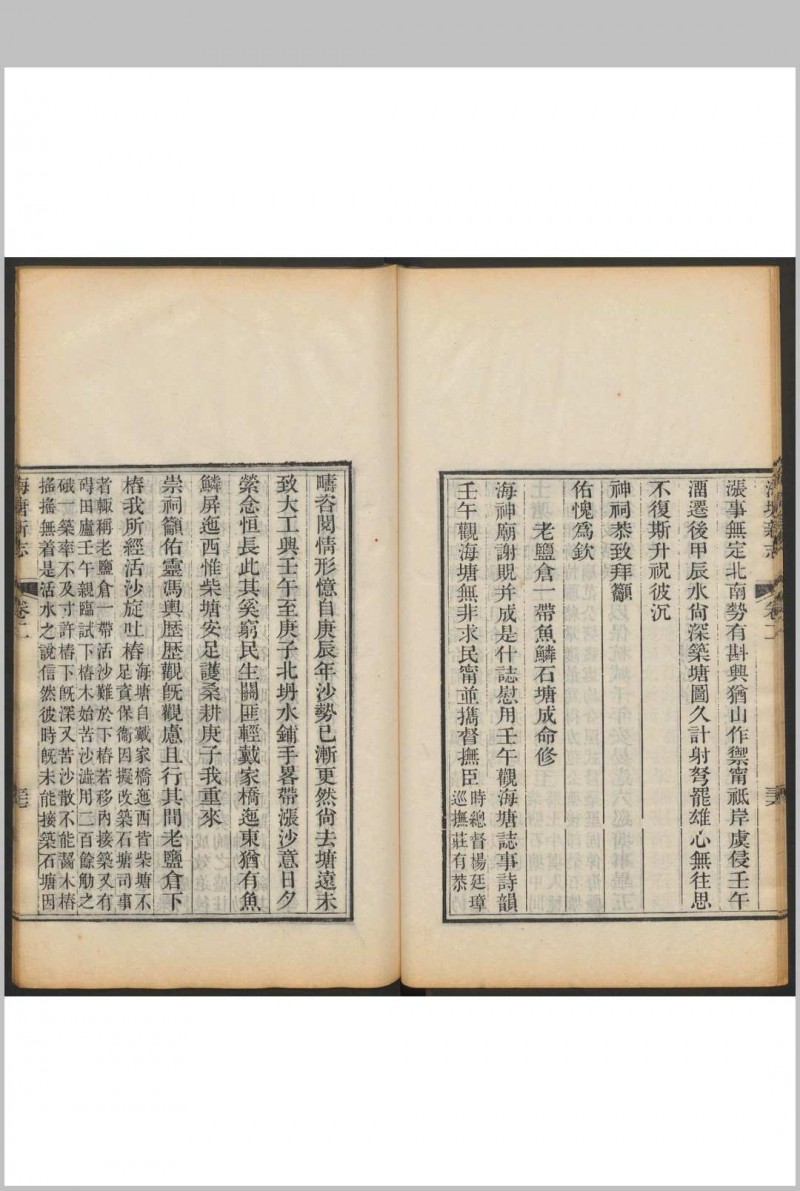 海塘新志 卷二
漲事無定北南勢有斟興猶山作禦甯祗岸虞侵壬午
濡遷後甲辰水尙深築塘圖久計射弩罷雄心無往思
不復斯升祝彼沉
神祠恭致拜籲
佑愧為欽
老鹽倉一帶魚鱗石塘成命修
海神廟謝貺并成是什誌慰用壬午觀海塘誌事詩韻
壬午觀海塘無非求民甯並攜督撫臣時總督楊廷璋
巡撫莊有恭
疇咨閱情形憶自庚辰年沙勢已漸更然尙去塘遠未
致大工興壬午至庚子北坍水鋪手畧帶漲沙意日夕
縈念恒長此其奚窮民生關匪輕戴家橋迤東猶有魚
鱗屏迤西惟柴塘安足護桑耕庚子我重來
崇祠籲佑靈馮輿歷歷觀旣觀慮且行其間老鹽倉下
樁我所經活沙旋吐樁海塘自戴家橋迤西皆柴塘不
足資保衞因擬改築石塘司事
者輙稱老鹽倉一帶活沙難於下樁若移內接築又有
碍田廬壬午親臨試下樁木始苦沙澁用二百餘觔之
硪一築率不及寸許樁下旣深又苦沙散不能嚙木樁
搖搖無着是活水之說信然彼時旣未能接築石塘因
海塘新志 卷二